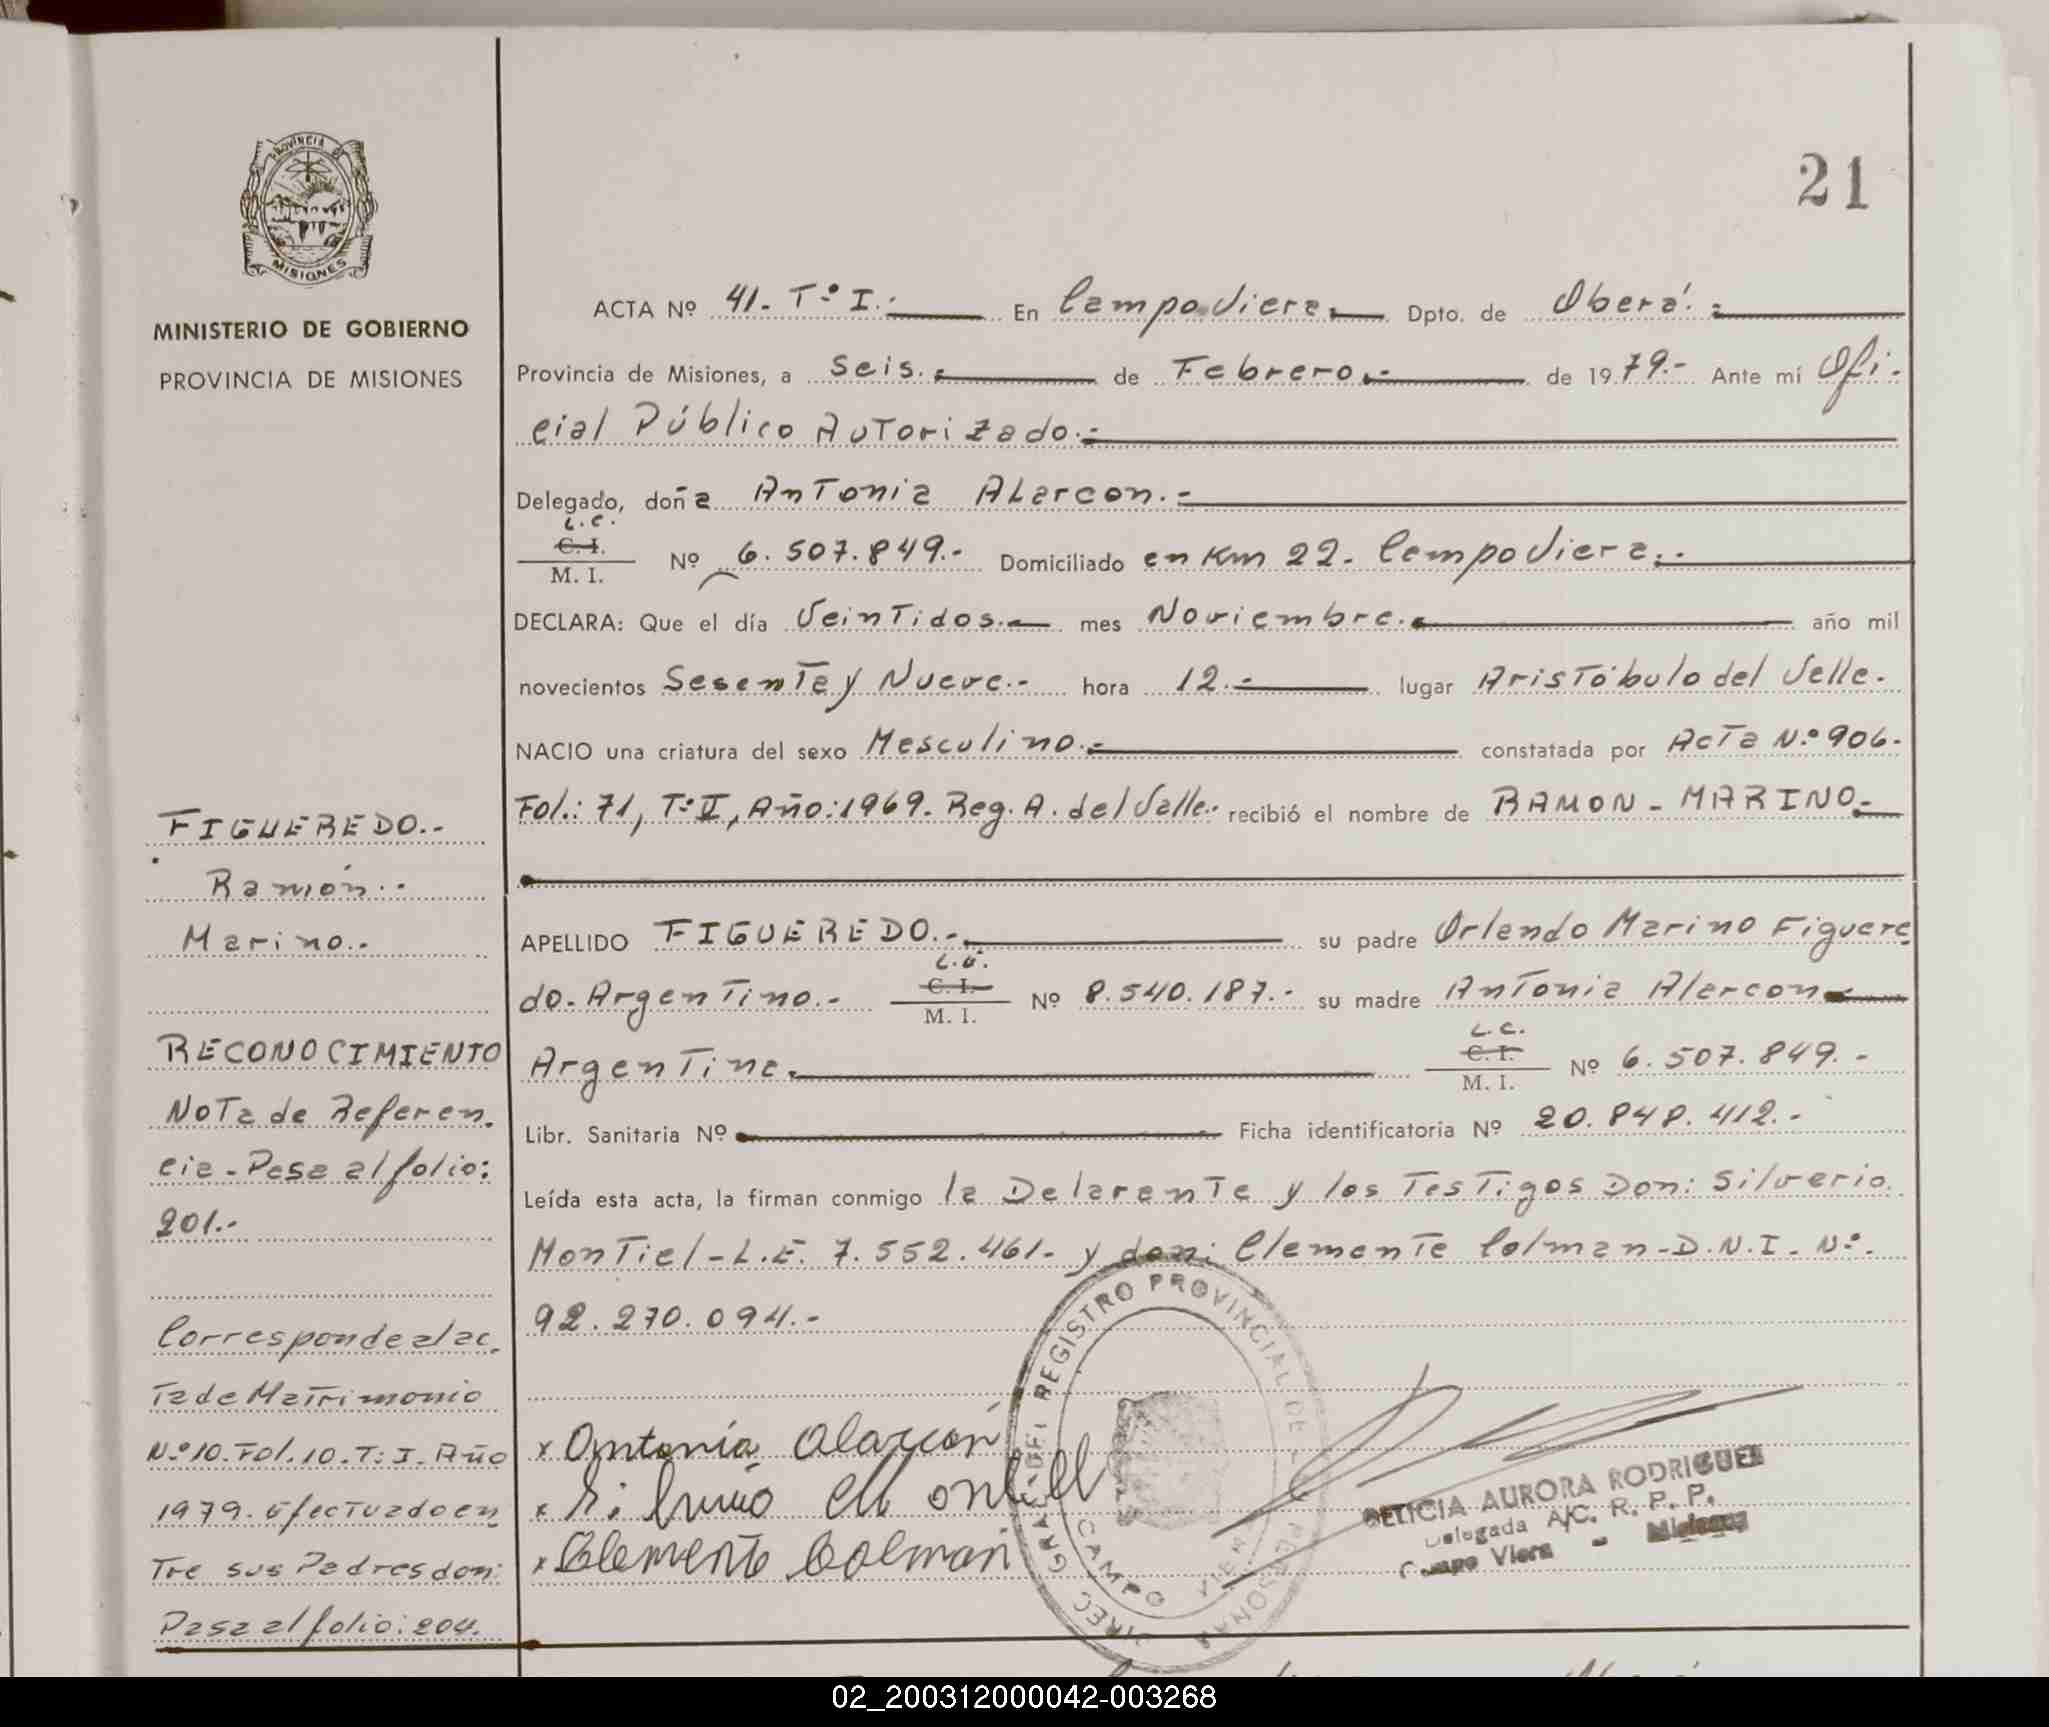 21
PROVINCIA DE
MISIONES
MINISTERIO DE GOBIERNO
PROVINCIA DE MISIONES
ACTA Nº 41. Tº I.- En Campo Viera Dpto. de Oberá.-
Provincia de Misiones, a Seis.- de Febrero.- de 1979.- Ante mí Ofi-
cial Público Autorizado.-
Delegado, doña Antonia Alarcon.-
L.C.
C.I. Nº 6.507.849.- Domiciliado en Km 22- Campo Viera.-
M. I.
DECLARA: Que el día Veintidos.- mes Noviembre.- año mil
novecientos Sesenta y Nueve.- hora 12.- lugar Aristóbulo del Valle.
NACIO una criatura del sexo Masculino.- constatada por Acta Nº 906-
Fol.: 71, Tº II, Año: 1969. Reg. A. del Valle.- recibió el nombre de RAMON - MARINO.-
APELLIDO FIGUEREDO.- su padre Orlando Marino Figuere
L.E.
do- Argentino.- C.I. Nº 8.540.187.- su madre Antonia Alarcon
M. I.
L.C.
Argentina.- C.I. Nº 6.507.849.-
M. I.
Libr. Sanitaria Nº Ficha identificatoria Nº 20.848.412.-
Leída esta acta, la firman conmigo la Delarante y los Testigos Don: Silverio
Montiel - L.E. 7.552.461- y don: Clemente Colman - D.N.I. Nº-
92.270.094.-
x Antonia Alarcón
x Silverio Montiel
x Clemente Colman
DIREC. GRAL. DEL REGISTRO PROVINCIAL DE LAS PERSONAS
CAMPO VIERA
DELICIA AURORA RODRIGUEZ
Delegada A/C. R. P. P.
Campo Viera - Misiones
FIGUEREDO.-
Ramón.-
Marino.-
RECONOCIMIENTO
Nota de Referen-
cia - Pasa al folio:
201.-
Corresponde al ac-
ta de Matrimonio
Nº 10. Fol. 10. T: I. Año
1979. Efectuado en
Tre sus Padres don:
Pasa al folio: 204.
02_200312000042-003268